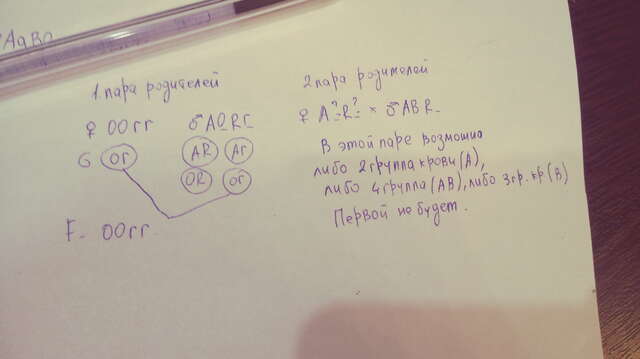 AaBO
1 пара родителей
2 пара родителей
♀ OOrr ♂AORr
♀ A?R? × ♂ABR_
G Or AR Ar
OR or
F. OOrr.
В этой паре возможна
либо 2 группа крови (A),
либо 4 группа (AB), либо 3 гр. кр (B)
Первой не будет.